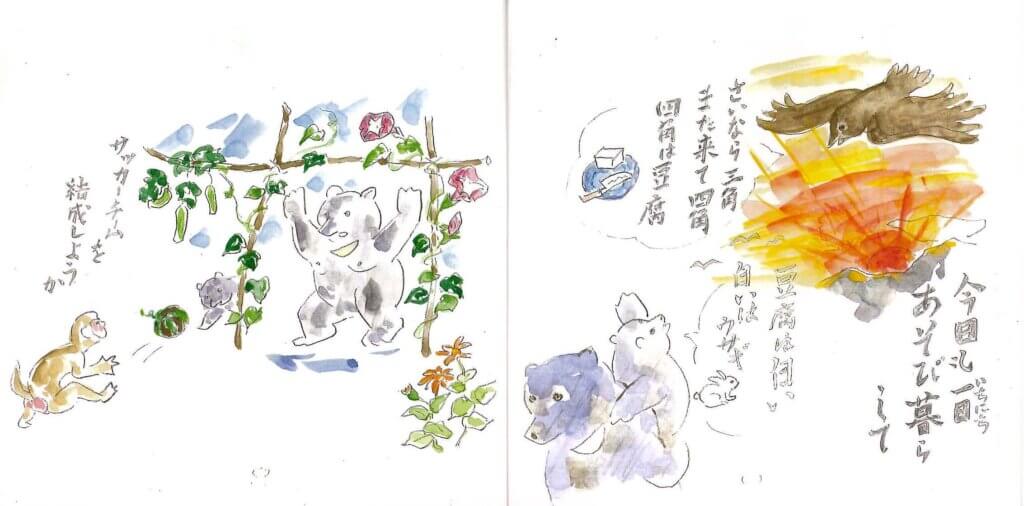 今日も一日
いちにち
あそび暮ら
して
さいなら三角
また来て四角
四角は豆腐
豆腐は白い
白いは
ウサギ
サッカーチームを
結成しようか